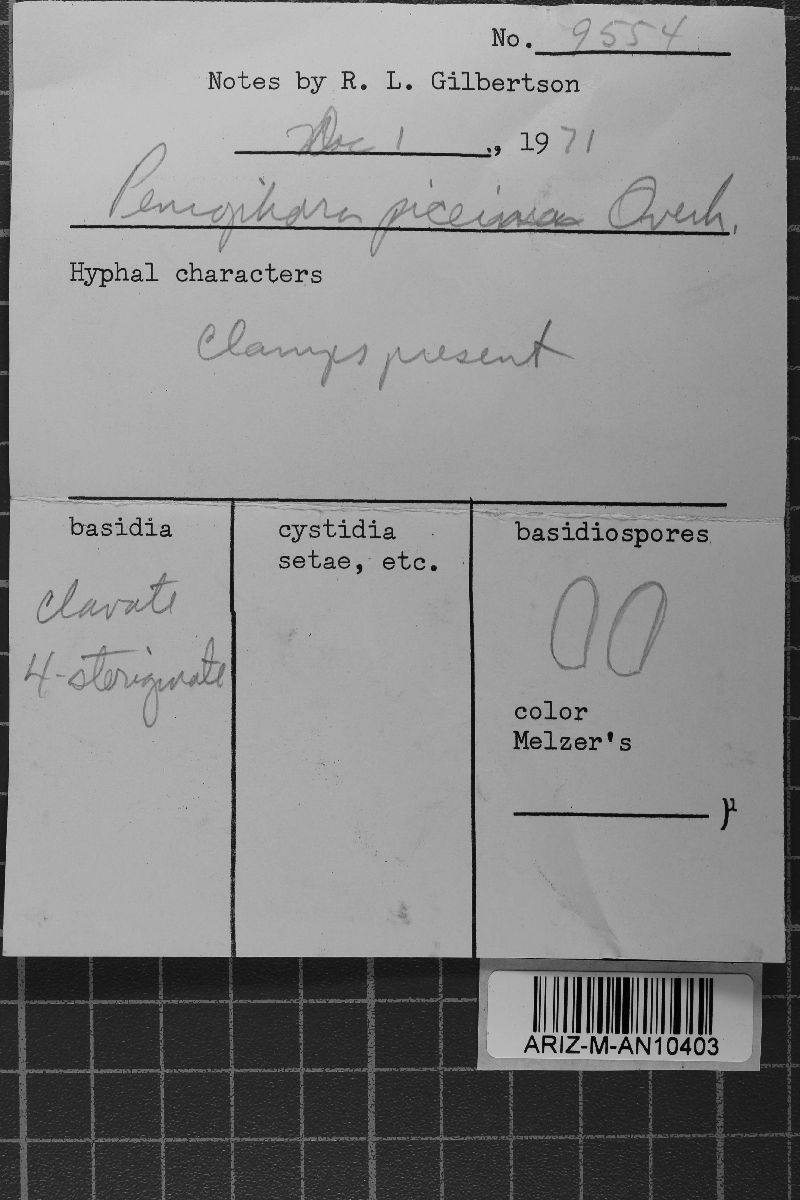 No. 9554
Notes by R. L. Gilbertson
Dec 1 ., 1971
Peniophora piceina Overh.
Hyphal characters
Clamps present
basidia
clavate
4-sterigmate
cystidia
setae, etc.
basidiospores
color
Melzer's
µ
ARIZ-M-AN10403